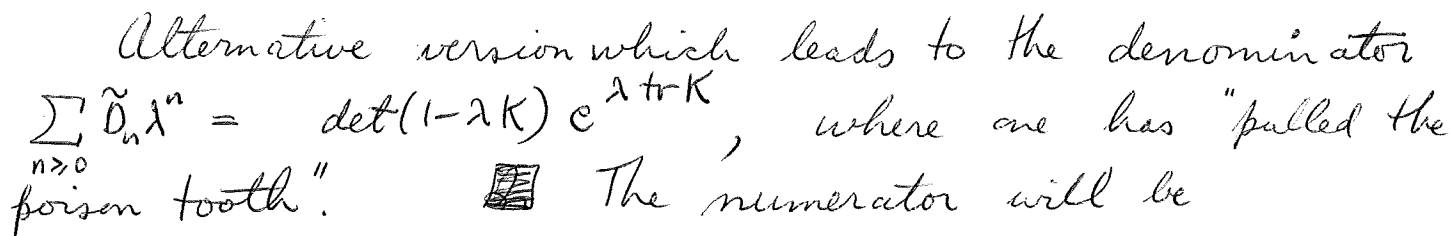 Alternative version which leads to the denominator
∑_{n≥0} D̃_n λ^n = det(1-λK) e^{λ tr K}, where one has "pulled the
poison tooth". The numerator will be